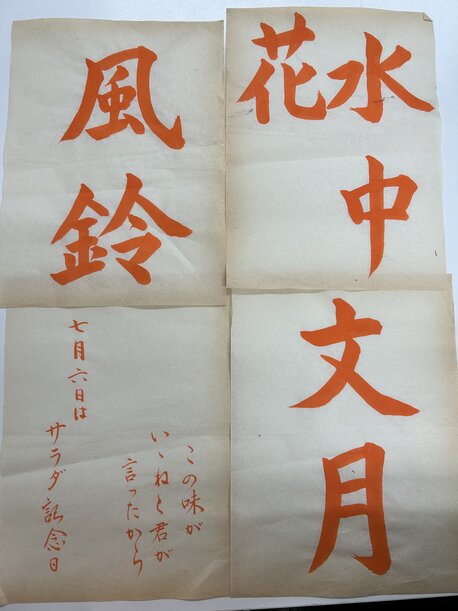 風鈴
水中
花
文月
この味が
いゝねと君が
言ったから
七月六日は
サラダ記念日